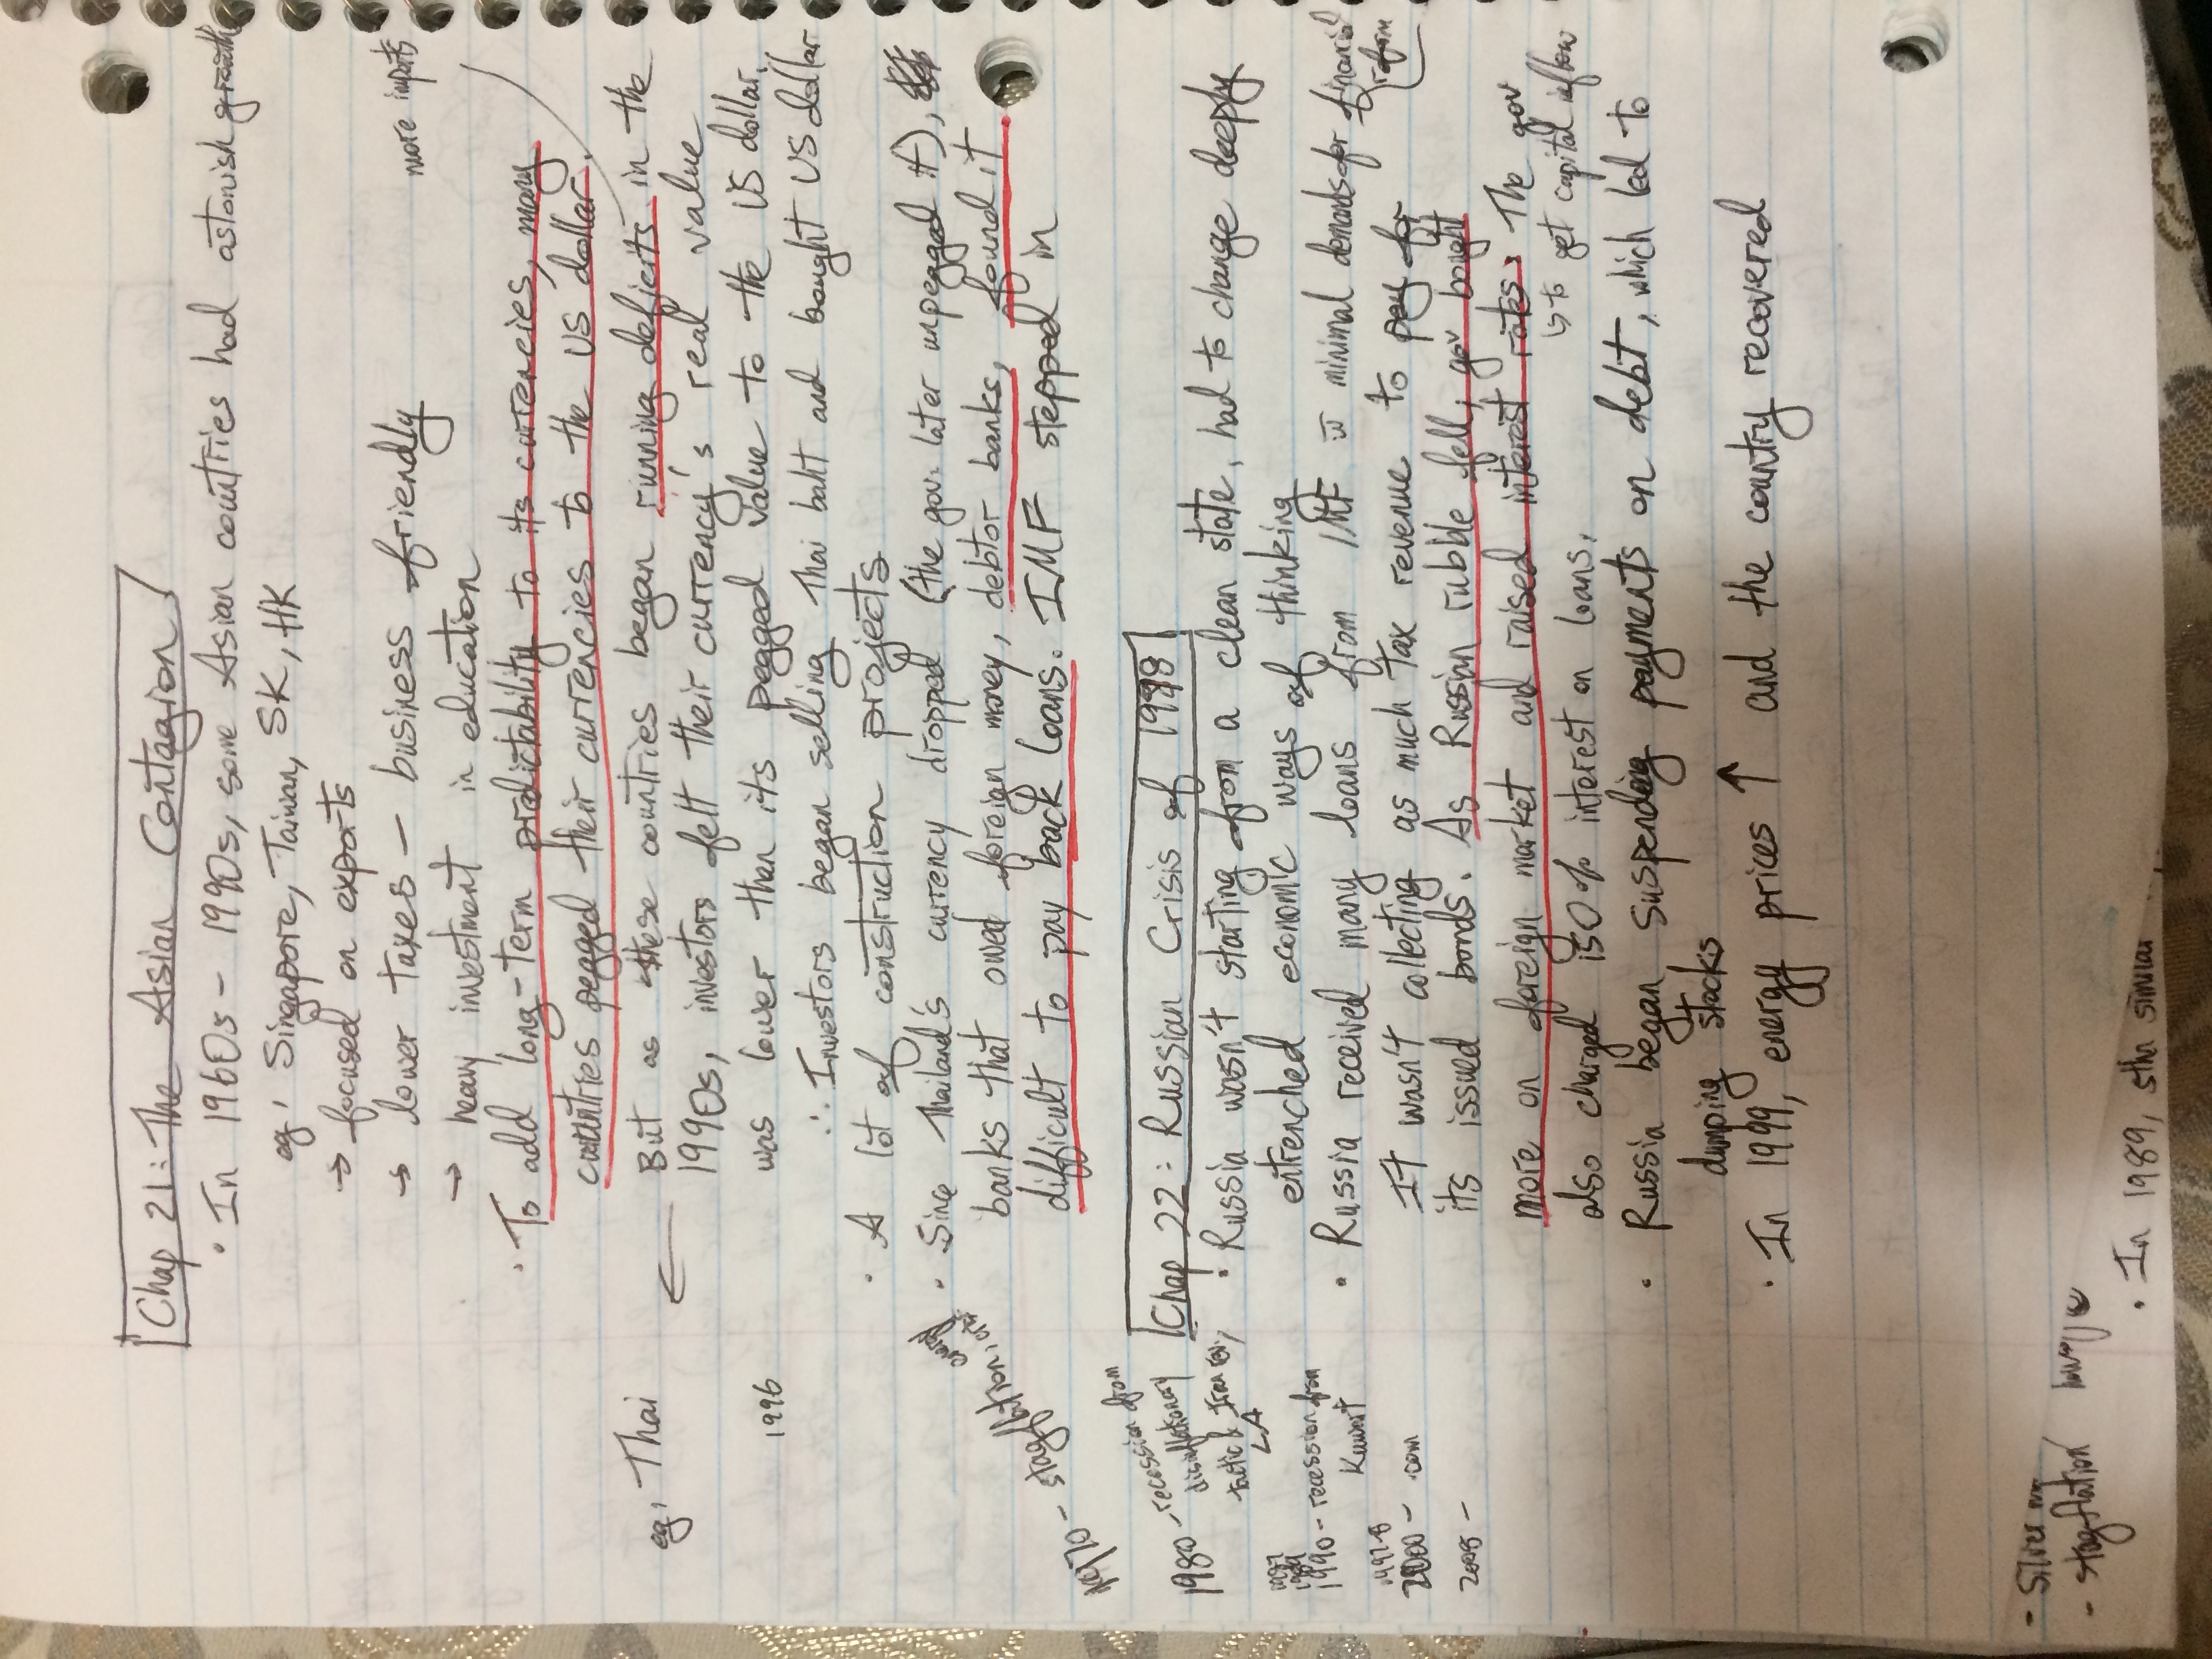 Chap 21: The Asian Contagion
• In 1960s - 1990s, some Asian countries had astonish growth
eg, Singapore, Taiwan, SK, HK
→ focused on exports
→ lower taxes - business friendly
more imports
→ heavy investment in education
• To add long-term predictability to its currencies, many
countries pegged their currencies to the US dollar.
eg, Thai ← But as these countries began running deficits in the
1990s, investors felt their currency's real value
1996
was lower than its pegged value to the US dollar.
∴ Investors began selling Thai baht and bought US dollar
• A lot of construction projects
• Since Thailand's currency dropped (the gov. later unpegged it),
banks that owed foreign money, debtor banks, found it
difficult to pay back loans. IMF stepped in
1970 - stagflation, energy
1980 - recession from
disinflationary
tactic & Iran rev.,
LA
1987
1989
1990 - recession from
Kuwait
1997-8
2000 - .com
2008 -
Chap 22: Russian Crisis of 1998
• Russia wasn't starting from a clean state, had to change deeply
entrenched economic ways of thinking
• Russia received many loans from IMF w minimal demands for financial
reform
It wasn't collecting as much tax revenue to pay for
its issued bonds. As Russian rubble fell, gov bought
more on foreign market and raised interest rates. The gov
↳ to get capital inflow
also charged 150% interest on loans.
• Russia began suspending payments on debt, which led to
dumping stocks
• In 1999, energy prices ↑ and the country recovered
- Silver
- stagflation
• In 1989, sthn similar